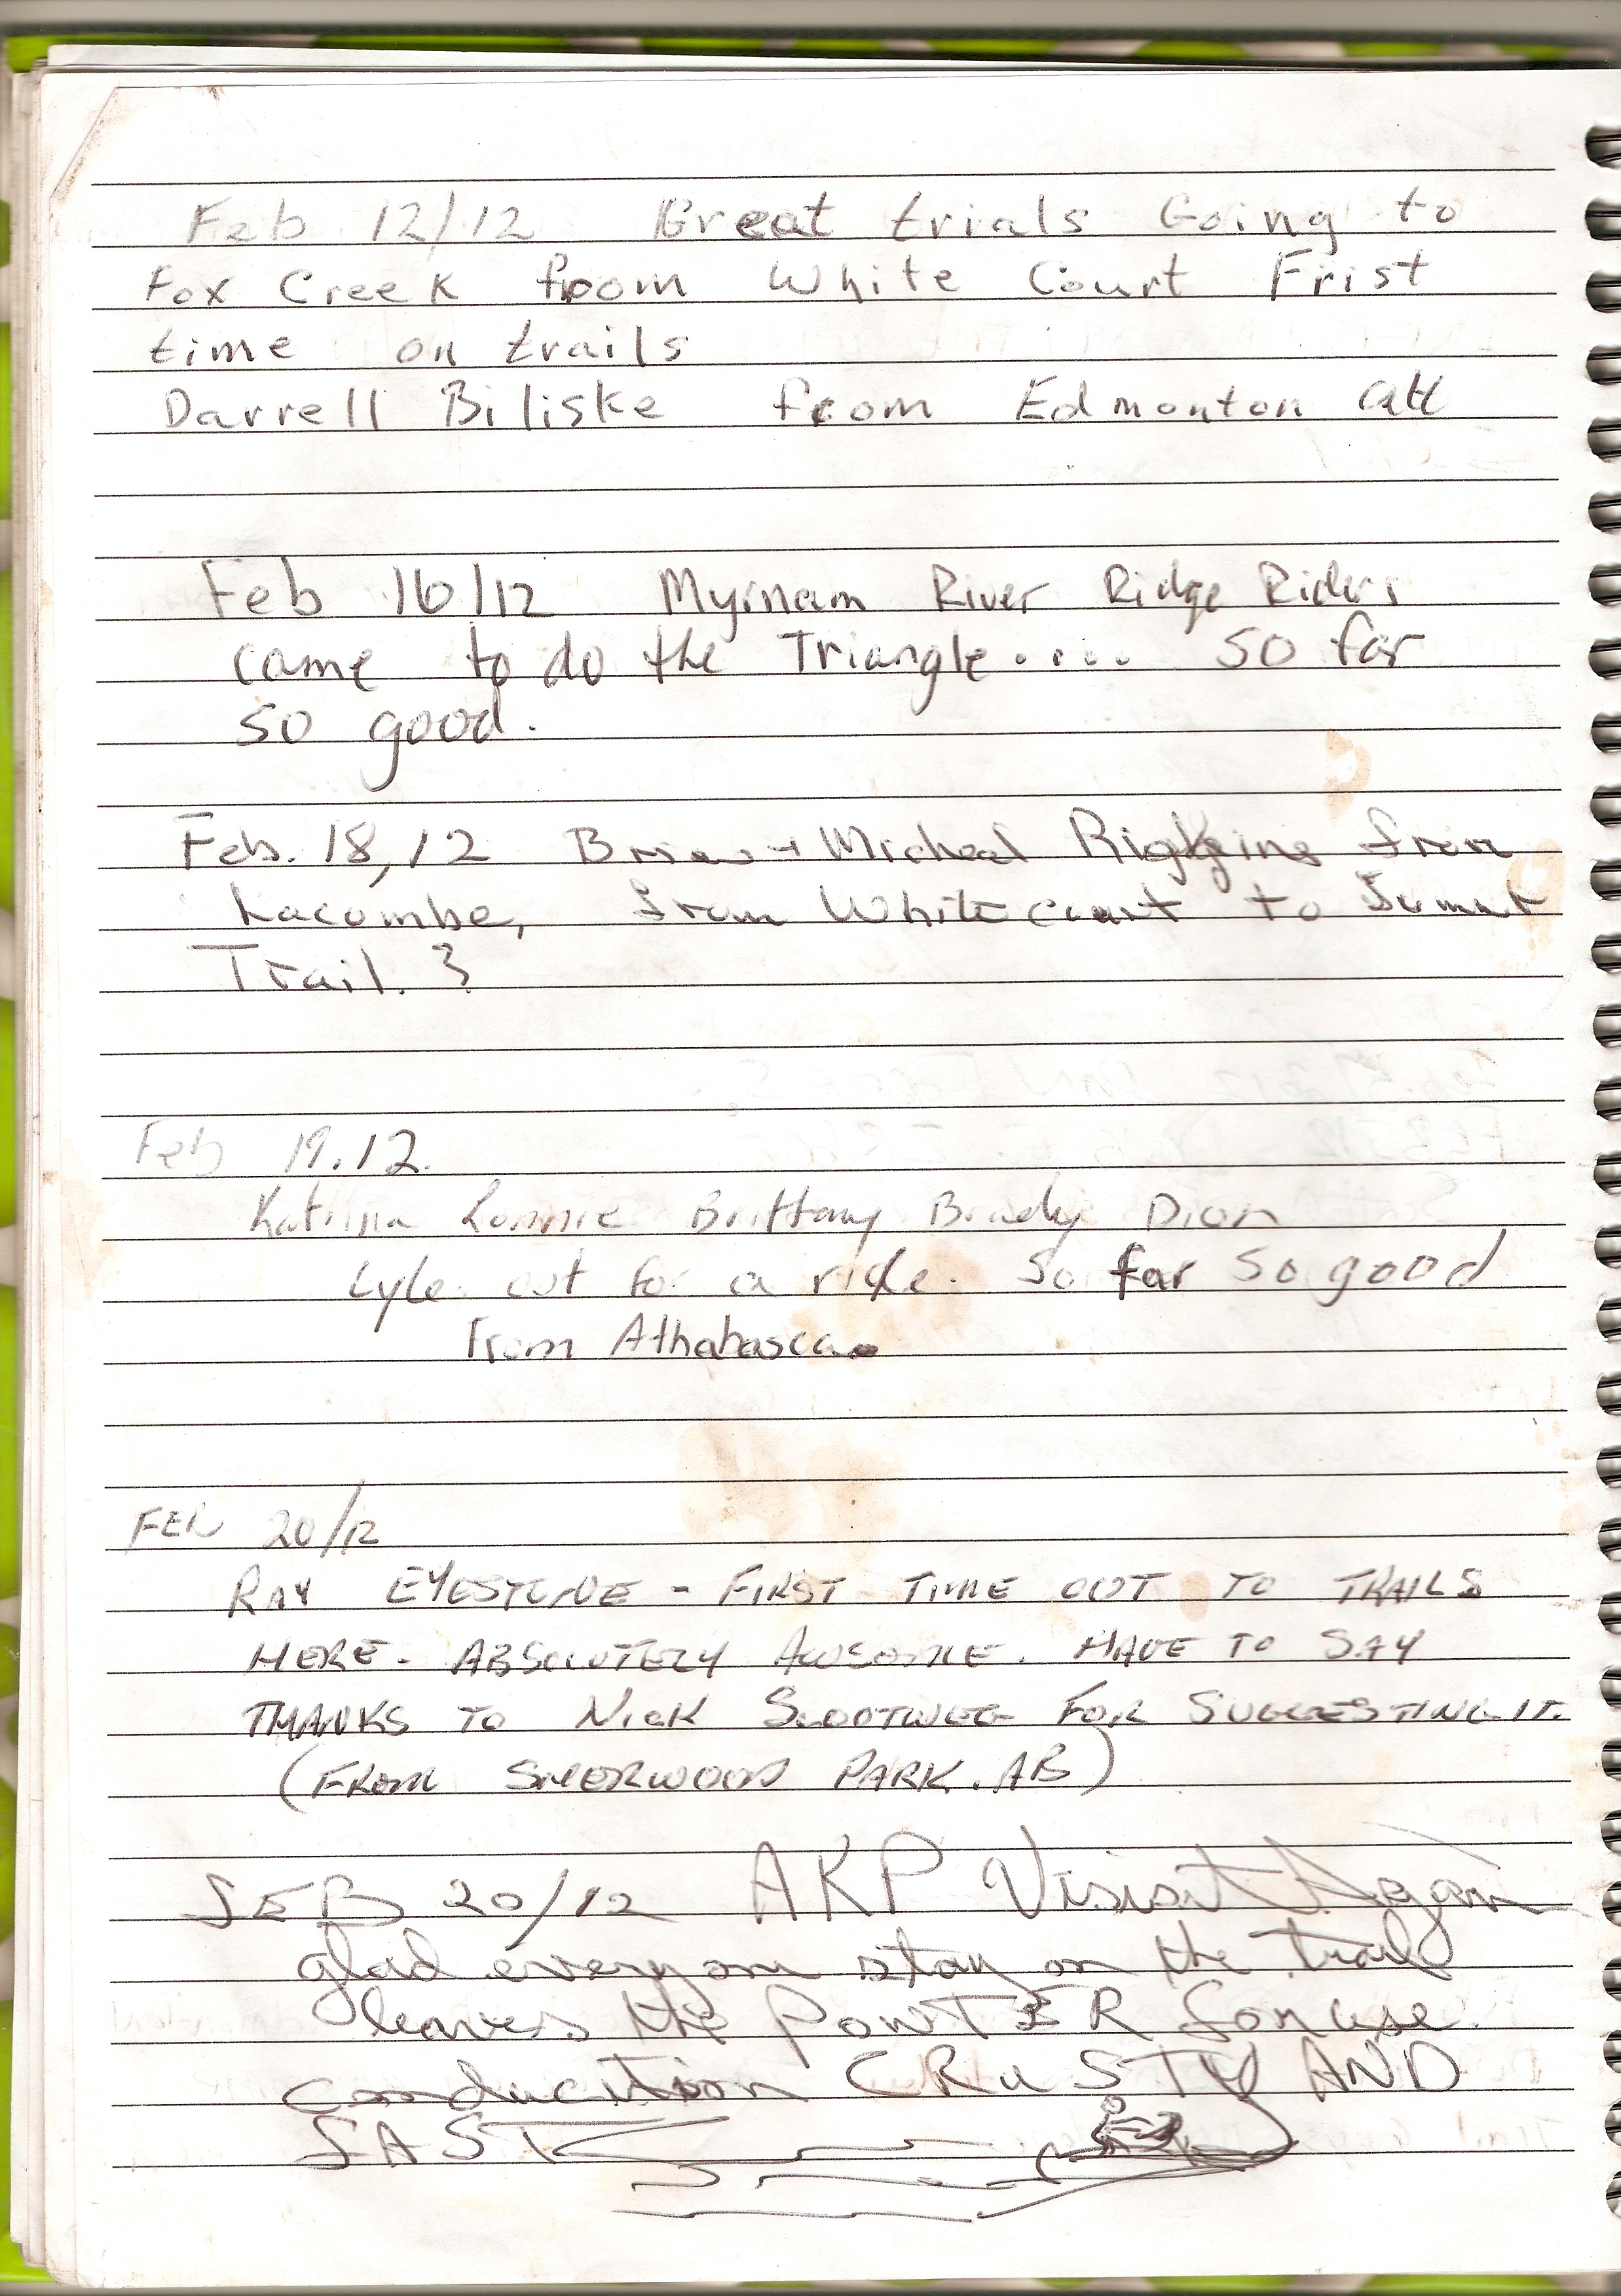 Feb 12/12 Great trials Going to
Fox Creek from White Court Frist
time on trails
Darrell Biliske from Edmonton
Feb 16/12 Myrnam River Ridge Riders
came to do the Triangle..... so far
so good.
Feb. 18, 12 Brian + Micheal from
Lacombe, from Whitecourt to
Trail.
Feb 19.12.
Katrina Lonnie Brittany Brady Dion
Lyle out for a ride. So far so good
From Athabasca.
FEB 20/12
RAY EYESTONE - FIRST TIME OUT TO TRAILS
HERE. ABSOLUTELY AWSOME. HAVE TO SAY
THANKS TO NICK SLOOTWEG FOR SUGGESTING IT.
(FROM SHERWOOD PARK. AB)
FEB 20/12 AKP Visist Again
glad everyone stay on the trail
leaves the for use.
conduction CRUSTY AND
FAST